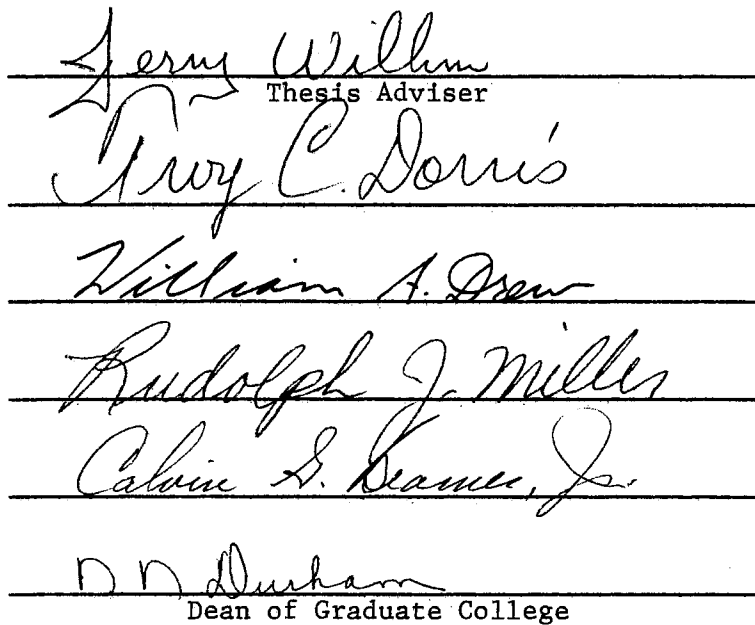 Jerry Wilhm
Thesis Adviser
Troy C. Dorris
William A. Drew
Rudolph J. Miller
Calvin G. Beames, Jr.
N N Durham
Dean of Graduate College